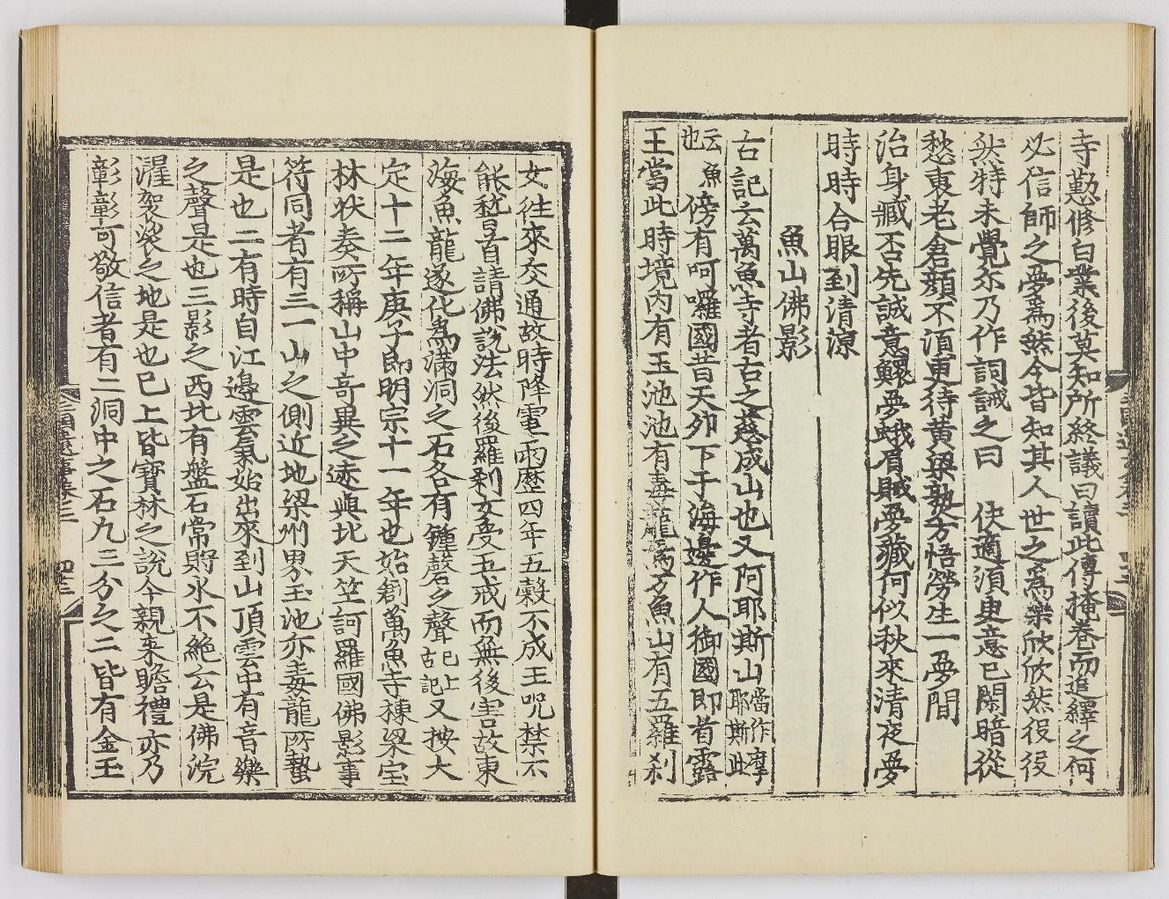 寺懃修白業後莫知所終議曰讀此傳掩卷而追繹之何
必信師之夢爲然今皆知其人世之爲樂欣欣然役役
然特未覺尓乃作詞誡之曰　快適湏臾意已閑暗從
愁裏老倉顔不湏更待黄粱熟方悟勞生一夢間
治身臧否先誠意鰥夢蛾眉賊夢藏何似秋來清夜夢
時時合眼到清凉
魚山佛影
古記云萬魚寺者古之慈成山也又阿耶斯山
當作摩
耶斯此
云魚
也
傍有呵囉國昔天夘下于海邊作人御國即首露
王當此時境內有玉池池有毒龍焉万魚山有五羅刹
女往來交通故時降電雨歷四年五糓不成王呪禁不
能稽首請佛說法然後羅刹女受五戒而無後害故東
海魚龍遂化爲滿洞之石各有鍾磬之聲
已上
古記
又按大
定十二年庚子即明宗十一年也始創萬魚寺棟梁宝
林状奏所稱山中奇異之迹與北天竺訶羅國佛影事
符同者有三一山之側近地梁州界玉池亦毒龍所蟄
是也二有時自江邊雲氣始出來到山頂雲中有音樂
之聲是也三影之西北有盤石常貯水不絶云是佛浣
濯袈裟之地是也已上皆寶林之說今親來瞻禮亦乃
彰彰可敬信者有二洞中之石九三分之二皆有金玉